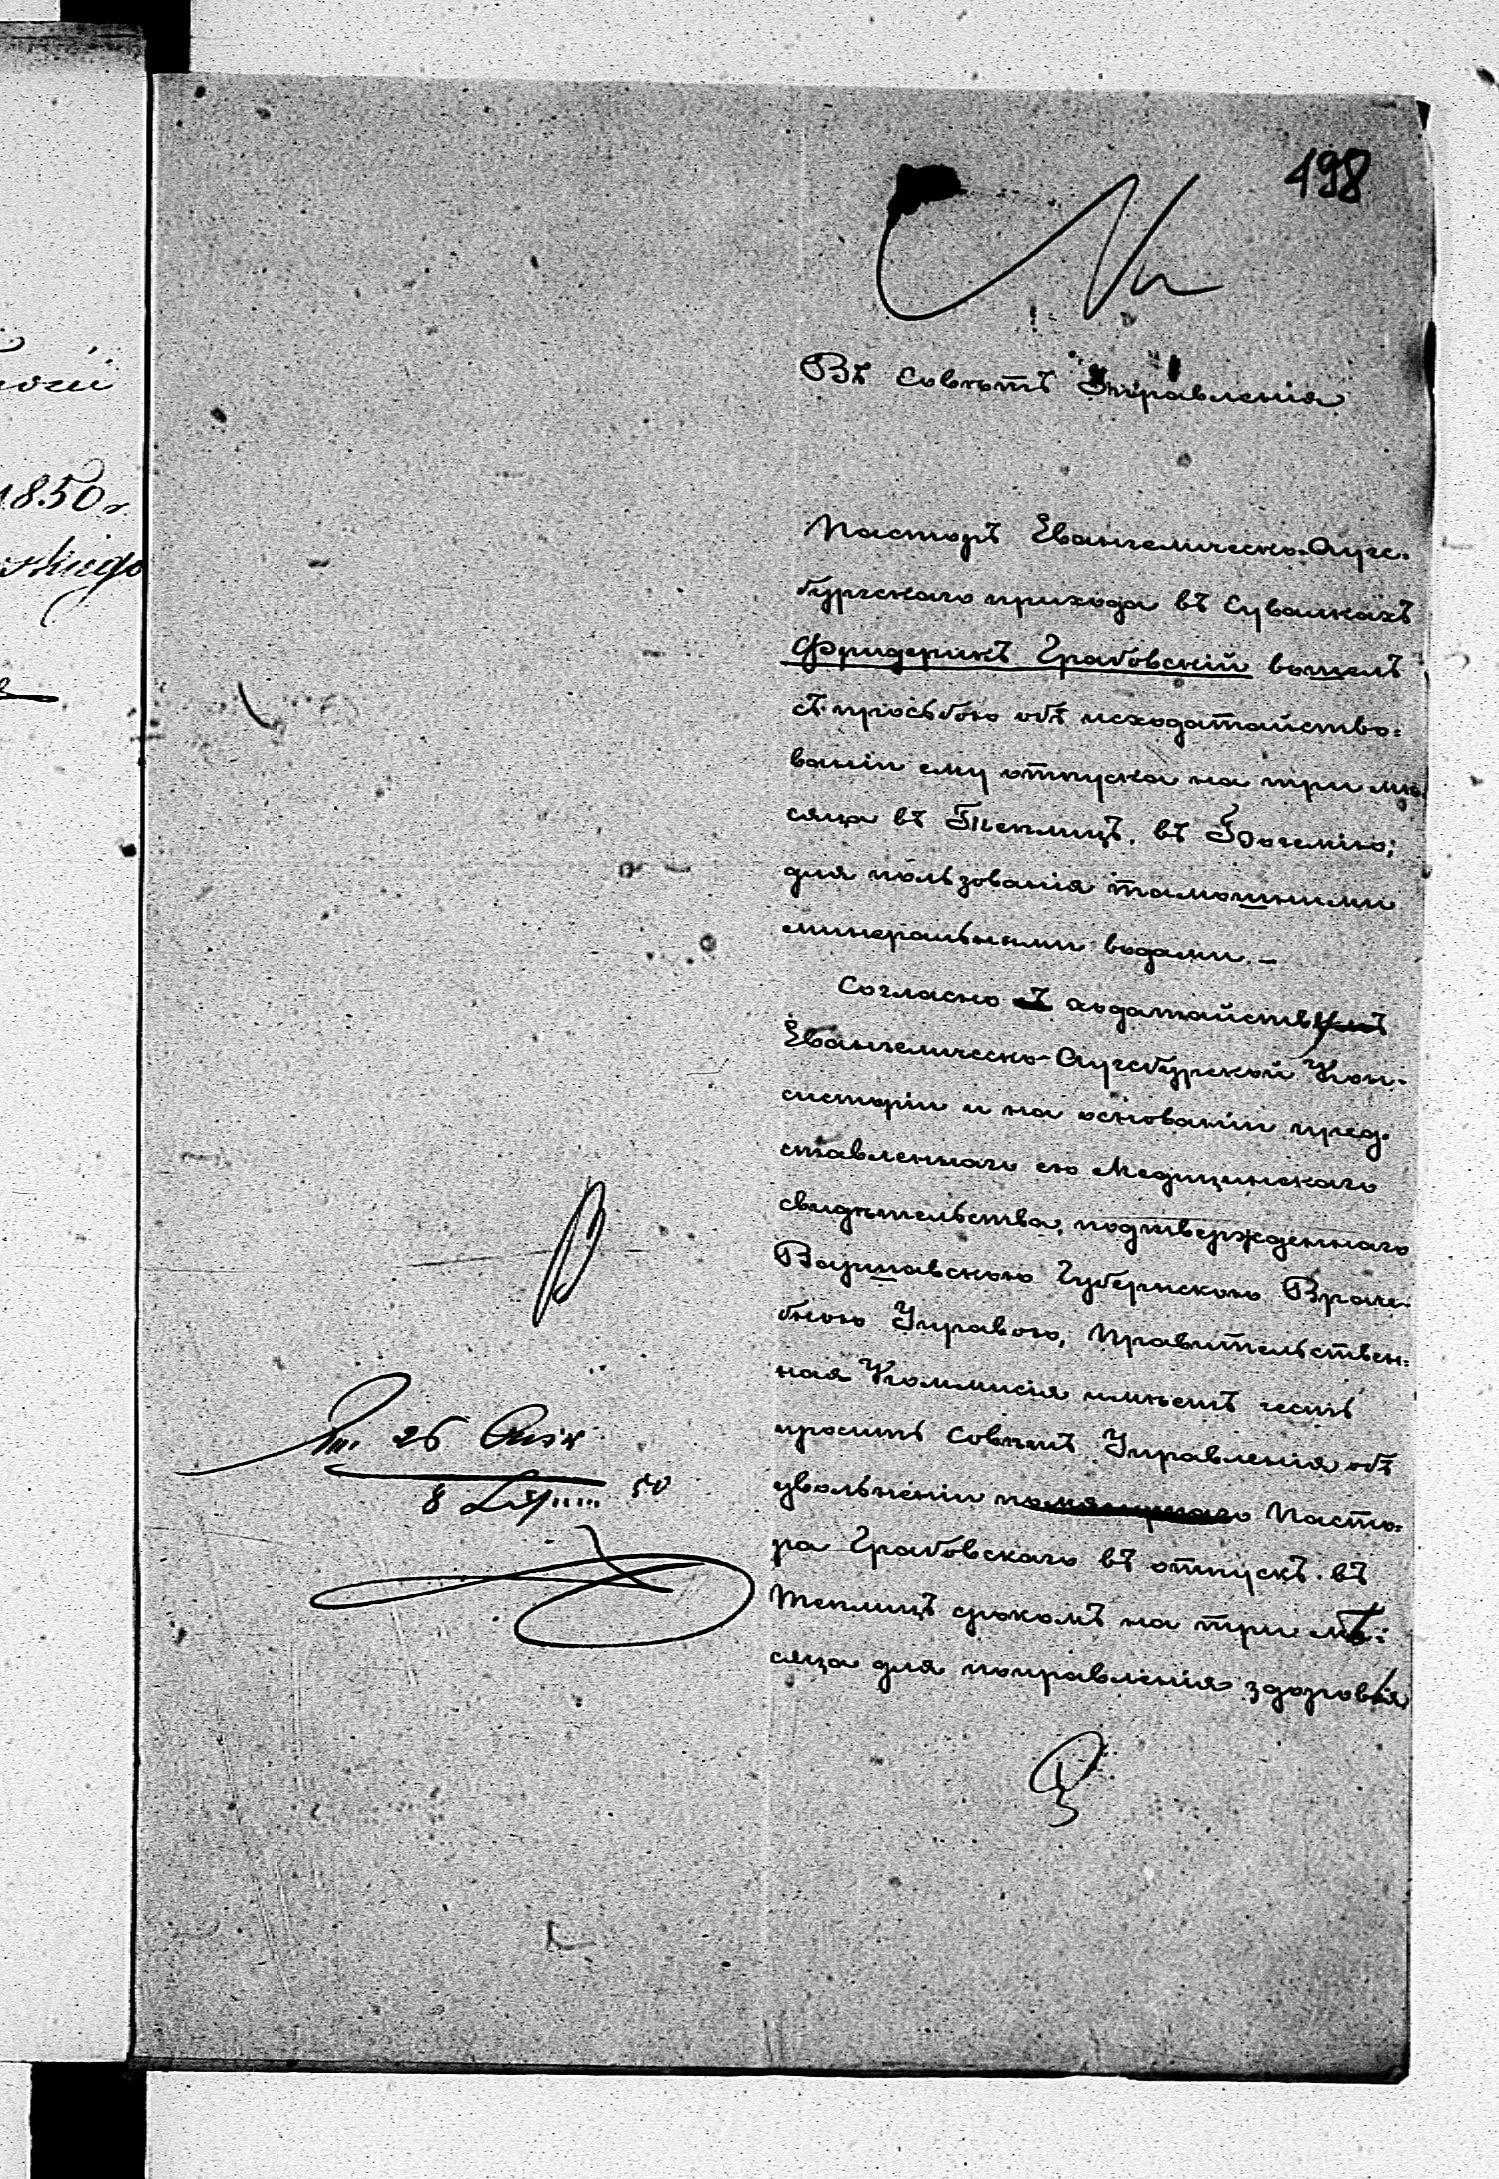 498
Въ Совѣтъ Управленія
Пасторъ Евангелическо-Аугс-
бургскаго прихода въ Сувалкахъ
Фридерикъ Грабовскій вошелъ
съ просьбою объ исходатайство=
ваніи ему отпуска на три мѣ-
сяца въ Теплицъ, въ Богемію,
для пользованія тамошними
минеральными водами. –
Согласно ходатайству
Евангелическо-Аугсбургской Кон-
систоріи и на основаніи пред-
ставленнаго ею Медицинскаго
свидѣтельства, подтвержденнаго
Варшавскою Губернскою Враче-
бною Управою, Правительствен=
ная Коммисія имѣетъ честь
просить Совѣтъ Управленія объ
увольненіи помянутаго Пасто=
ра Грабовскаго въ отпускъ въ
Теплицъ срокомъ на три мѣ=
сяца для поправленія здоровья
26
8 50
1850 г.